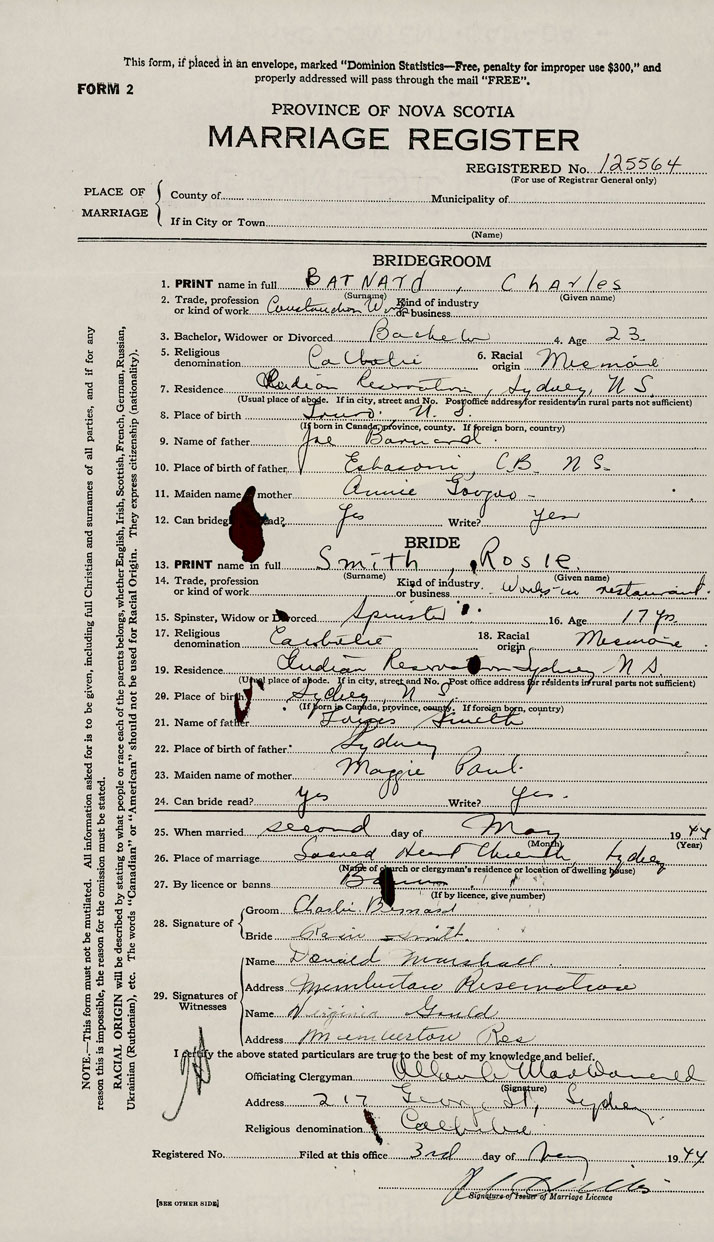 This form, if placed in an envelope, marked "Dominion Statistics—Free, penalty for improper use $300," and
properly addressed will pass through the mail "FREE".
FORM 2
PROVINCE OF NOVA SCOTIA
MARRIAGE REGISTER
REGISTERED No. 125564
(For use of Registrar General only)
PLACE OF MARRIAGE
County of Municipality of
If in City or Town
(Name)
BRIDEGROOM
1. PRINT name in full BArNArd, Charles
(Surname) (Given name)
2. Trade, profession or kind of work Construction Work Kind of industry or business
3. Bachelor, Widower or Divorced Bachelor 4. Age 23
5. Religious denomination Catholic 6. Racial origin Micmac
7. Residence Indian Reservation, Sydney, N.S.
(Usual place of abode. If in city, street and No. Post office address for residents in rural parts not sufficient)
8. Place of birth Truro N.S.
(If born in Canada, province, county. If foreign born, country)
9. Name of father Joe Barnard
10. Place of birth of father Eskasoni, C.B. N.S.
11. Maiden name mother Annie Googoo
12. Can bridegroom read? Yes Write? Yes
BRIDE
13. PRINT name in full Smith, Rosie
(Surname) (Given name)
14. Trade, profession or kind of work Kind of industry or business Works in restaurant
15. Spinster, Widow or Divorced Spinster 16. Age 17 yrs
17. Religious denomination Catholic 18. Racial origin Micmac
19. Residence Indian Reservation Sydney N.S.
(Usual place of abode. If in city, street and No. Post office address for residents in rural parts not sufficient)
20. Place of birth Sydney, N.S.
(If born in Canada, province, county. If foreign born, country)
21. Name of father Smith
22. Place of birth of father Sydney
23. Maiden name of mother Maggie Paul
24. Can bride read? Yes Write? Yes.
25. When married second day of May 1944
(Month) (Year)
26. Place of marriage Sacred Heart Church, Sydney
(Name of church or clergyman's residence or location of dwelling house)
27. By licence or banns Banns
(If by licence, give number)
28. Signature of
Groom Charlie Bernard
Bride Smith
29. Signatures of Witnesses
Name Donald Marshall
Address Membertou Reservation
Name Virginia Gould
Address Membertou Res
I certify the above stated particulars are true to the best of my knowledge and belief.
Officiating Clergyman MacDonald
(Signature)
Address 217 George St., Sydney
Religious denomination Catholic
Registered No. Filed at this office 3rd day of May 1944
Signature of Issuer of Marriage Licence
[SEE OTHER SIDE]
NOTE.—This form must not be mutilated. All information asked for is to be given, including full Christian and surnames of all parties, and if for any
reason this is impossible, the reason for the omission must be stated.
RACIAL ORIGIN will be described by stating to what people or race each of the parents belongs, whether English, Irish, Scottish, French, German, Russian,
Ukrainian (Ruthenian), etc. The words "Canadian" or "American" should not be used for Racial Origin. They express citizenship (nationality).